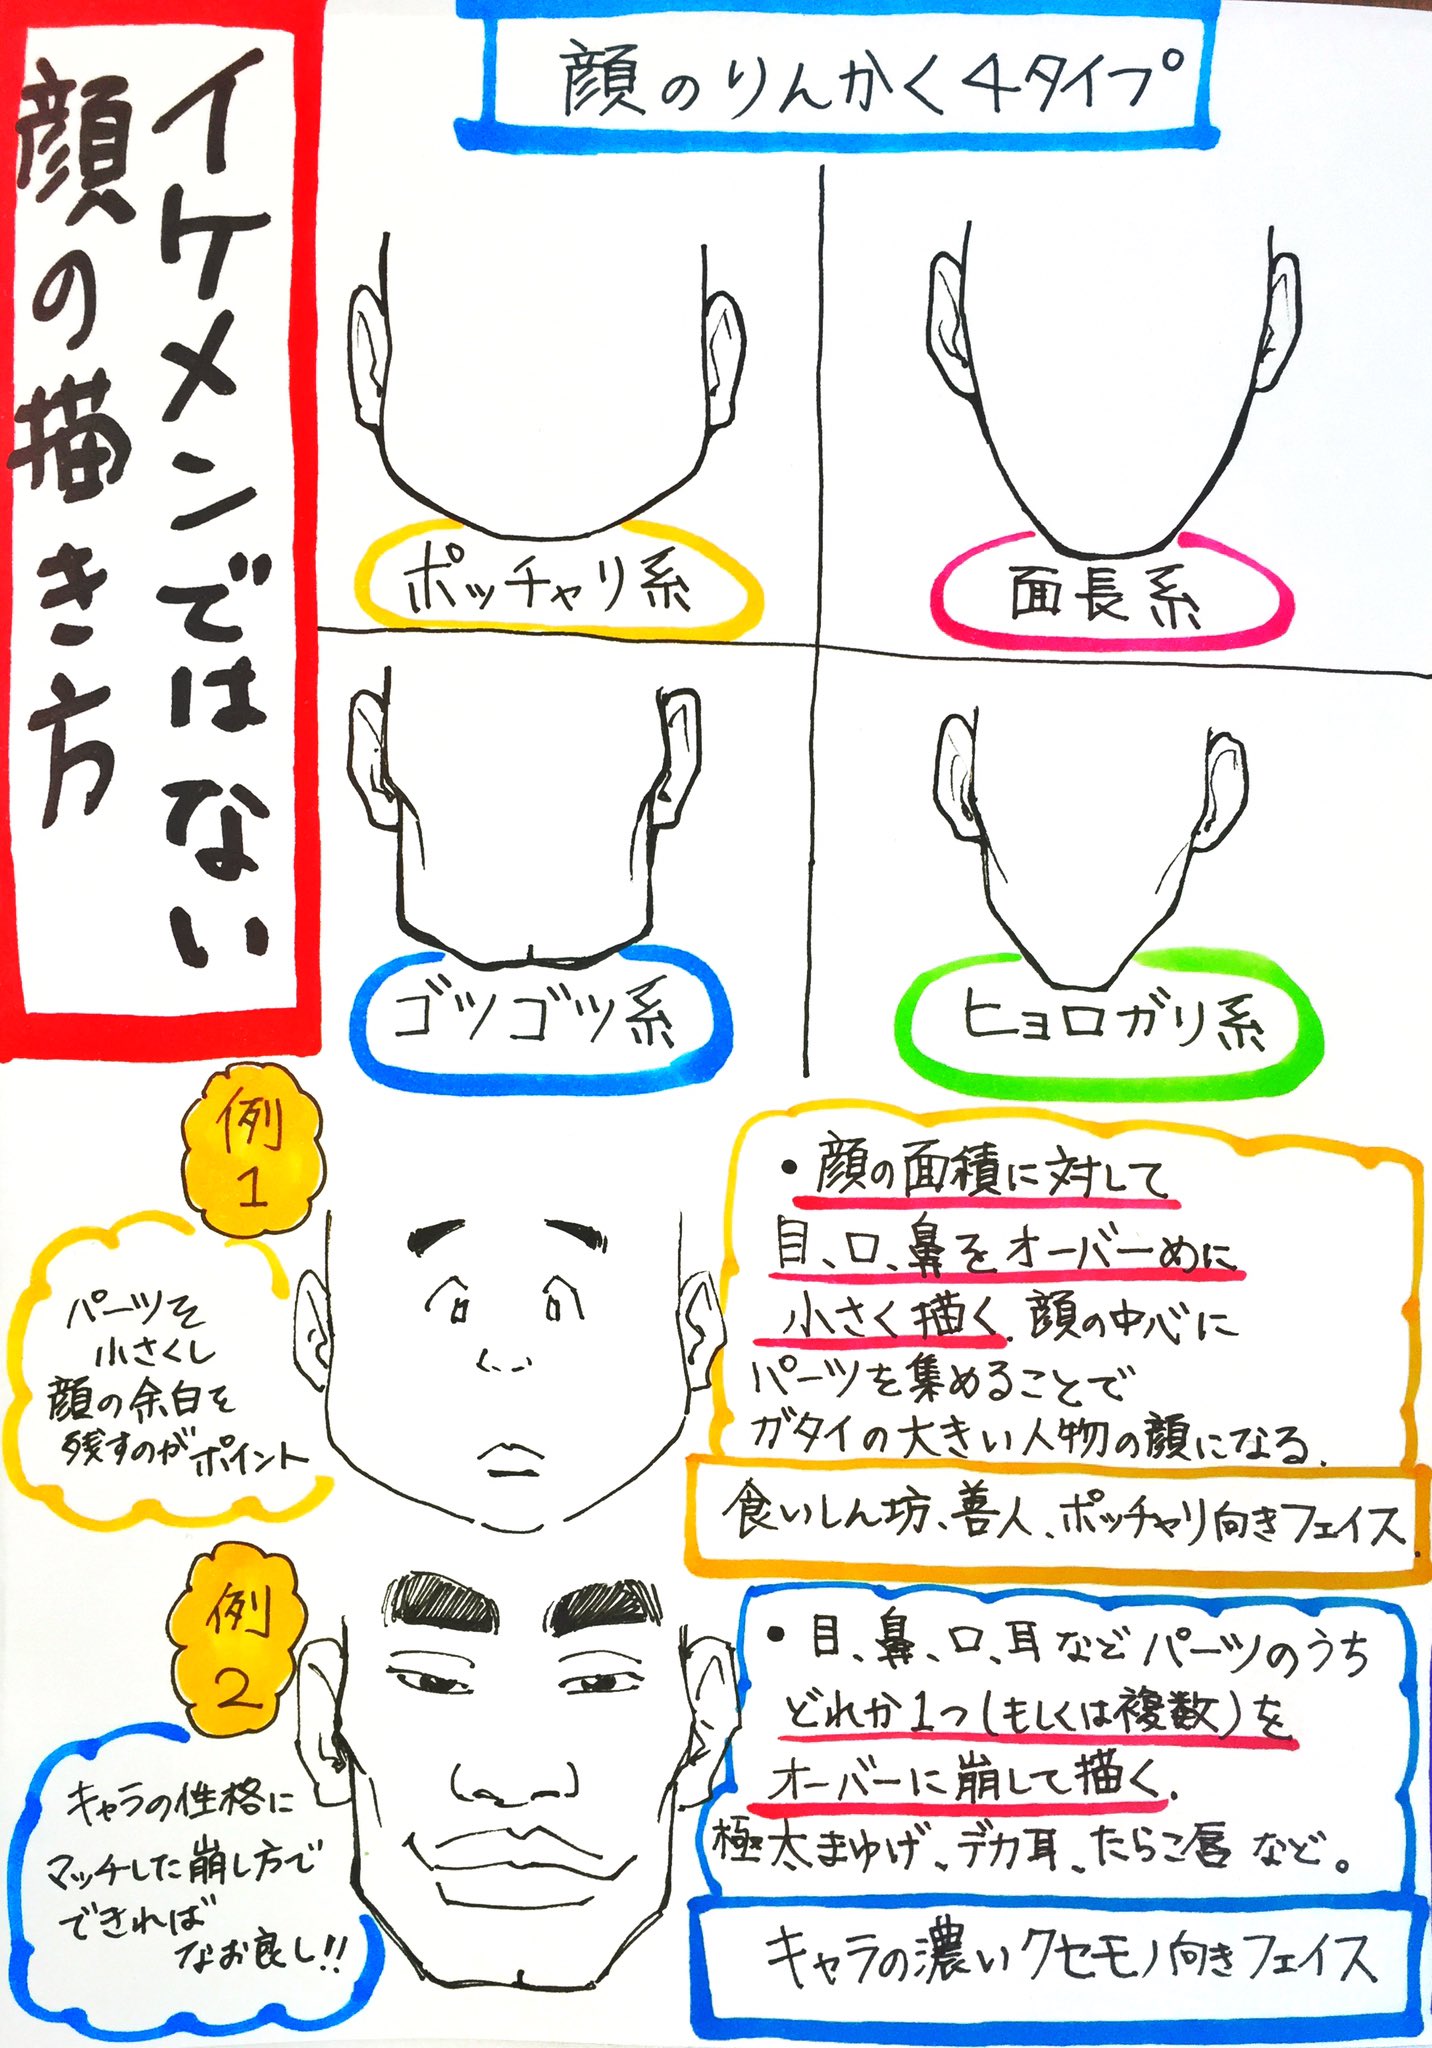 イケメンではない
顔の描き方
顔のりんかく4タイプ
ポッチャリ系
面長系
ゴツゴツ系
ヒョロガリ系
例
1
パーツを
小さくし
顔の余白を
残すのがポイント
・顔の面積に対して
目、口、鼻をオーバーめに
小さく描く。顔の中心に
パーツを集めることで
ガタイの大きい人物の顔になる。
食いしん坊、善人、ポッチャリ向きフェイス.
例
2
キャラの性格に
マッチした崩し方で
できれば
なお良し!!
・目、鼻、口、耳などパーツのうち
どれか1つ(もしくは複数)を
オーバーに崩して描く。
極太まゆげ、デカ耳、たらこ唇など。
キャラの濃いクセモノ向きフェイス